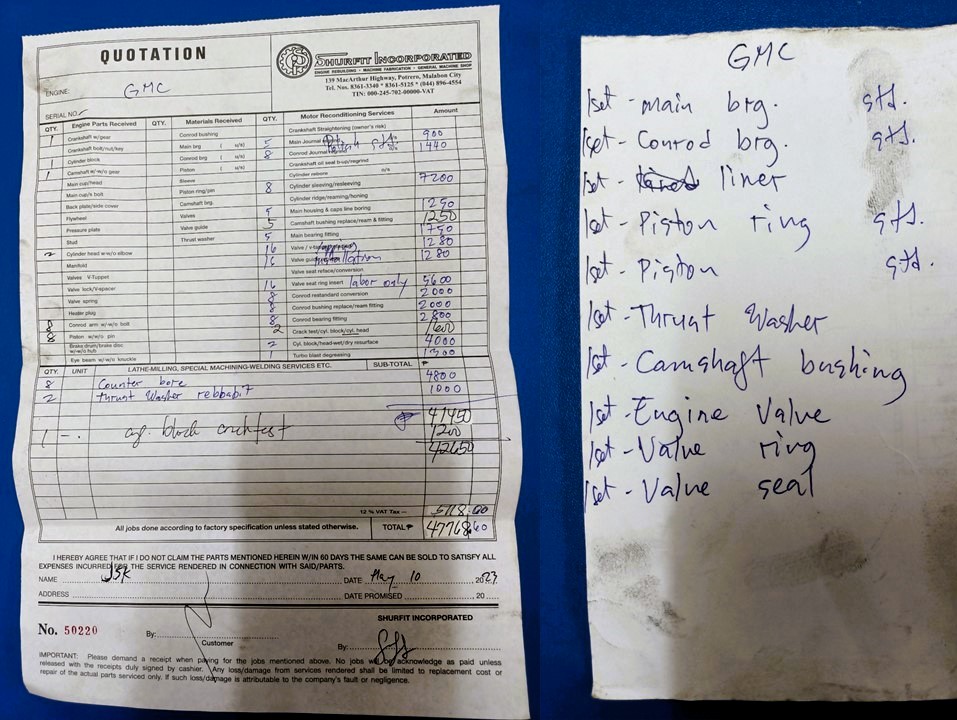 QUOTATION
SHURFIT INCORPORATED
ENGINE REBUILDING • MACHINE FABRICATION • GENERAL MACHINE SHOP
139 MacArthur Highway, Potrero, Malabon City
Tel. Nos. 8361-3340 * 8361-5125 * (044) 896-4554
TIN: 000-245-702-00000-VAT
ENGINE: GMC
SERIAL NO.
QTY. Engine Parts Received QTY. Materials Received QTY. Motor Reconditioning Services Amount
1 Crankshaft w/gear Conrod bushing Crankshaft Straightening (owner's risk)
Crankshaft bolt/nut/key Main brg ( u/s) 5 Main Journal 900
1 Cylinder block Conrod brg ( u/s) 8 Conrod Journal Polish std. 1440
1 Camshaft w/w/o gear Piston ( u/s) Crankshaft oil seal b-up/regrind
Main cup/head Sleeve Cylinder rebore o/s
Main cup/s bolt Piston ring/pin 8 Cylinder sleeving/resleeving 7200
Back plate/side cover Camshaft brg. Cylinder ridge/reaming/honing
Flywheel Valves 5 Main housing & caps line boring 1250
Pressure plate Valve guide 5 Camshaft bushing replace/ream & fitting 1250
Stud Thrust washer 5 Main bearing fitting 1750
2 Cylinder head w/w/o elbow 16 Valve 1280
Manifold 16 Valve installation 1280
Valves V-Tuppet Valve seat reface/conversion
Valve lock/V-spacer 16 Valve seat ring insert labor only 5600
Valve spring 8 Conrod restandard conversion 2000
Heater plug 8 Conrod bushing replace/ream fitting 2000
8 Conrod arm w/w/o bolt 8 Conrod bearing fitting 2800
8 Piston w/w/o pin 2 Crack test/cyl. block/cyl. head 1600
Brake drum/brake disc w/w/o hub 2 Cyl. block/head-wet/dry resurface 4000
Eye beam w/w/o knuckle 1 Turbo blast degreasing 1300
QTY. UNIT LATHE-MILLING, SPECIAL MACHINING-WELDING SERVICES ETC. SUB-TOTAL ₱
8 Counter bore 4800
2 thrust washer rebbabit 1000
₱ 41450
1 cyl. block cracktest 1200
42650
12 % VAT Tax 5118.00
All jobs done according to factory specification unless stated otherwise. TOTAL ₱ 47768.00
I HEREBY AGREE THAT IF I DO NOT CLAIM THE PARTS MENTIONED HEREIN W/IN 60 DAYS THE SAME CAN BE SOLD TO SATISFY ALL
EXPENSES INCURRED FOR THE SERVICE RENDERED IN CONNECTION WITH SAID/PARTS.
NAME JSK DATE May 10 2023
ADDRESS DATE PROMISED 20
SHURFIT INCORPORATED
No. 50220 By: Customer By:
IMPORTANT: Please demand a receipt when paying for the jobs mentioned above. No jobs will be acknowledge as paid unless
released with the receipts duly signed by cashier. Any loss/damage from services rendered shall be limited to replacement cost or
repair of the actual parts serviced only. If such loss/damage is attributable to the company's fault or negligence.
GMC
1set - main brg. std.
1set - Conrod brg. std.
1set - liner
1set - Piston ring std.
1set - Piston std.
1set - Thrust Washer
1set - Camshaft bushing
1set - Engine Valve
1set - Value ring
1set - Value seal